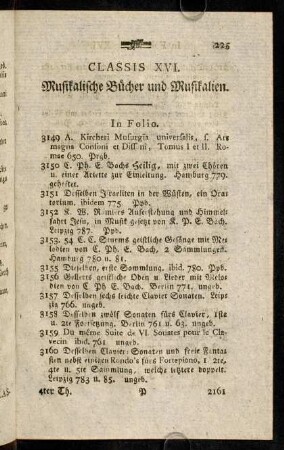 225
CLASSIS XVI.
Musikalische Bücher und Musikalien.
In Folio.
3149 A. Kircheri Musurgia universalis, s. Ars
magna Consoni et Dissoni, Tomus I et II. Ro-
mae 650. Prgb.
3150 C. Ph. E. Bachs Heilig, mit zwei Chören
u. einer Ariette zur Einleitung. Hamburg 779.
geheftet.
3151 Desselben Israeliten in der Wüsten, ein Ora-
torium, ibidem 775. Ppb.
3152 K. W. Ramlers Auferstehung und Himmel-
fahrt Jesu, in Musik gesetzt von K. P. E. Bach.
Leipzig 787. Ppb.
3153. 54 C. C. Sturms geistliche Gesänge mit Me-
lodien von C. Ph. E. Bach, 2 Sammlungen.
Hamburg 780 u. 81.
3155 Dieselben, erste Sammlung, ibid. 780. Ppb.
3156 Gellerts geistliche Oden u. Lieder mit Melo-
dien von C. Ph. E. Bach. Berlin 771. ungeb.
3157 Desselben sechs leichte Clavier Sonaten. Leip-
zig 766. ungeb.
3158 Desselben zwölf Sonaten fürs Clavier, 1ste
u. 2te Fortsetzung, Berlin 761 u. 63. ungeb.
3159 Du même Suite de VI. Sonates pour le Cla-
vecin ibid. 761 ungeb.
3160 Desselben Clavier-Sonaten und freie Fanta-
sien nebst einigen Rondo's fürs Fortepiano, 1 2te,
4te u. 5te Sammlung, welche letztere doppelt.
Leipzig 783 u. 85. ungeb.
4ter Th. P 2161